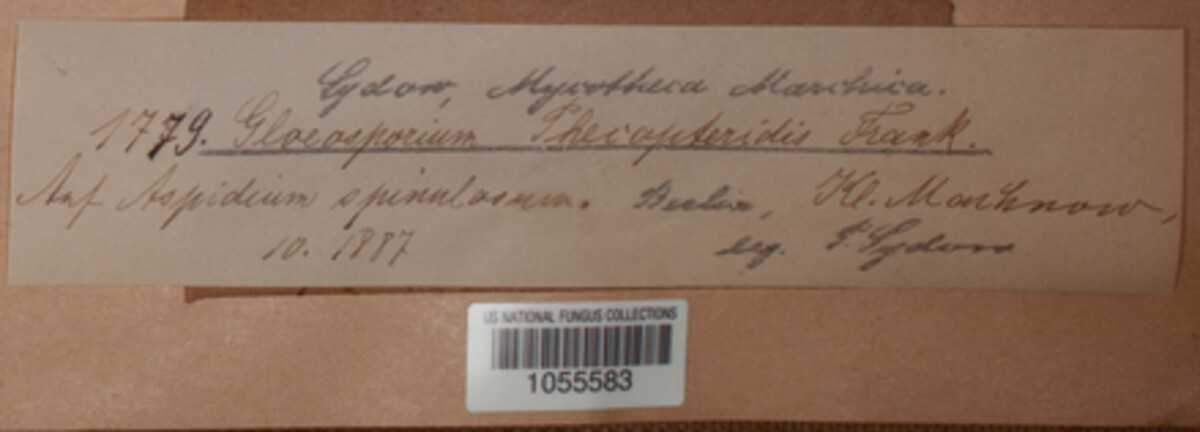 Sydow, Mycotheca Marchica.
1779. Gloeosporium Phecopteridis Frank.
Auf Aspidium spinulosum. Berlin, Kl. Machnow,
10. 1887 leg. P. Sydow
US NATIONAL FUNGUS COLLECTIONS
1055583